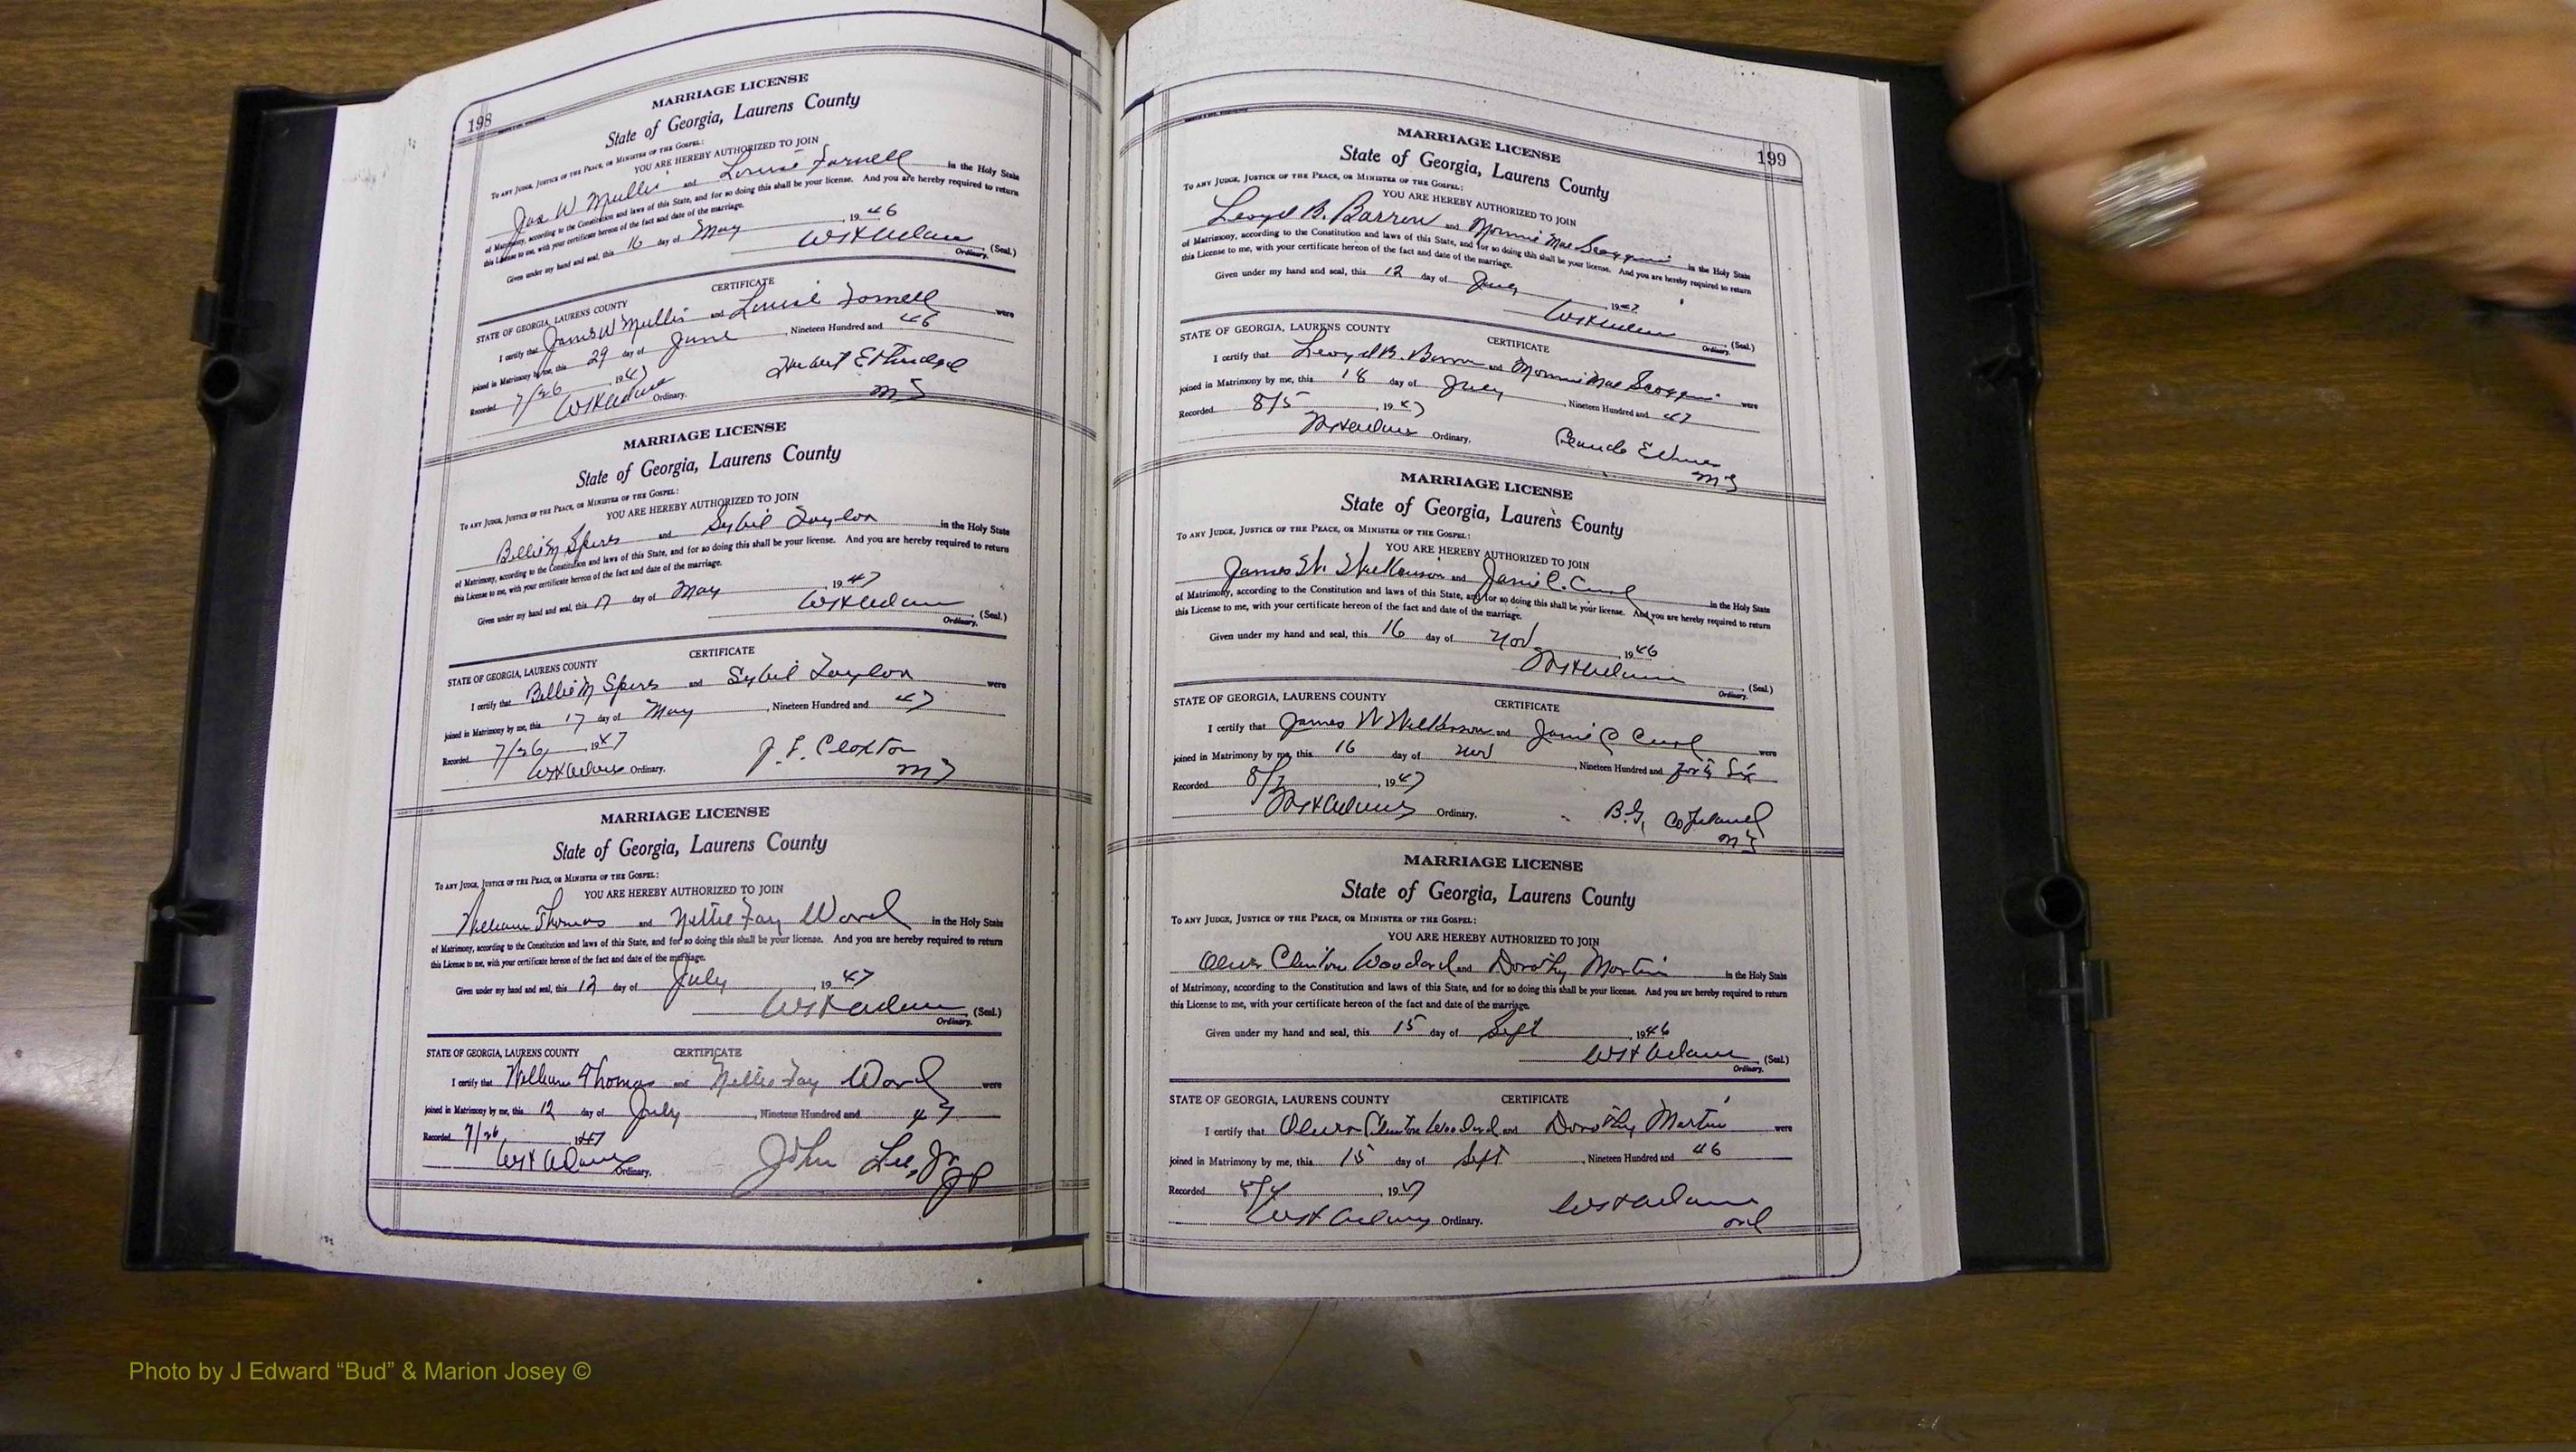 198
MARRIAGE LICENSE
State of Georgia, Laurens County
To any Judge, Justice of the Peace, or Minister of the Gospel:
YOU ARE HEREBY AUTHORIZED TO JOIN
Jas W Mullis and Louise Fornell in the Holy State
of Matrimony, according to the Constitution and laws of this State, and for so doing this shall be your license. And you are hereby required to return
this License to me, with your certificate hereon of the fact and date of the marriage.
Given under my hand and seal, this 16 day of May, 1946
(Seal.)
Ordinary.
CERTIFICATE
STATE OF GEORGIA, LAURENS COUNTY
I certify that James W Mullis and Louise Fornell were
joined in Matrimony by me, this 29 day of June, Nineteen Hundred and 46
Recorded 7/26 1947
Ordinary.
MARRIAGE LICENSE
State of Georgia, Laurens County
To any Judge, Justice of the Peace, or Minister of the Gospel:
YOU ARE HEREBY AUTHORIZED TO JOIN
Billie M Spires and Sybil Taylor in the Holy State
of Matrimony, according to the Constitution and laws of this State, and for so doing this shall be your license. And you are hereby required to return
this License to me, with your certificate hereon of the fact and date of the marriage.
Given under my hand and seal, this 17 day of May, 1947
(Seal.)
Ordinary.
CERTIFICATE
STATE OF GEORGIA, LAURENS COUNTY
I certify that Billie M Spires and Sybil Taylor were
joined in Matrimony by me, this 17 day of May, Nineteen Hundred and 47
Recorded 7/26, 1947
Ordinary. J. F. Claxton
MG
MARRIAGE LICENSE
State of Georgia, Laurens County
To any Judge, Justice of the Peace, or Minister of the Gospel:
YOU ARE HEREBY AUTHORIZED TO JOIN
William Thomas and Nettie Fay Ward in the Holy State
of Matrimony, according to the Constitution and laws of this State, and for so doing this shall be your license. And you are hereby required to return
this License to me, with your certificate hereon of the fact and date of the marriage.
Given under my hand and seal, this 12 day of July, 1947
(Seal.)
Ordinary.
STATE OF GEORGIA, LAURENS COUNTY CERTIFICATE
I certify that William Thomas and Nellie Fay Ward were
joined in Matrimony by me, this 12 day of July, Nineteen Hundred and 47
Recorded 7/26, 1947
Ordinary. John Lee, Jr JP
199
MARRIAGE LICENSE
State of Georgia, Laurens County
To any Judge, Justice of the Peace, or Minister of the Gospel:
YOU ARE HEREBY AUTHORIZED TO JOIN
Leoyd B. Barron and Monnie Mae Scoggin in the Holy State
of Matrimony, according to the Constitution and laws of this State, and for so doing this shall be your license. And you are hereby required to return
this License to me, with your certificate hereon of the fact and date of the marriage.
Given under my hand and seal, this 12 day of July, 1947
(Seal.)
Ordinary.
STATE OF GEORGIA, LAURENS COUNTY CERTIFICATE
I certify that Leoyd B. Barron and Monnie Mae Scoggin were
joined in Matrimony by me, this 18 day of July, Nineteen Hundred and 47
Recorded 8/5, 1947
Ordinary.
MG
MARRIAGE LICENSE
State of Georgia, Laurens County
To any Judge, Justice of the Peace, or Minister of the Gospel:
YOU ARE HEREBY AUTHORIZED TO JOIN
James W. Wilkerson and Janie C. Curl in the Holy State
of Matrimony, according to the Constitution and laws of this State, and for so doing this shall be your license. And you are hereby required to return
this License to me, with your certificate hereon of the fact and date of the marriage.
Given under my hand and seal, this 16 day of Nov, 1946
(Seal.)
Ordinary.
STATE OF GEORGIA, LAURENS COUNTY CERTIFICATE
I certify that James W Wilkerson and Janie C Curl were
joined in Matrimony by me, this 16 day of Nov, Nineteen Hundred and forty six
Recorded 8/7, 1947
Ordinary. B.G. Copeland
MG
MARRIAGE LICENSE
State of Georgia, Laurens County
To any Judge, Justice of the Peace, or Minister of the Gospel:
YOU ARE HEREBY AUTHORIZED TO JOIN
Oliver Clinton Woodard and Dorothy Martin in the Holy State
of Matrimony, according to the Constitution and laws of this State, and for so doing this shall be your license. And you are hereby required to return
this License to me, with your certificate hereon of the fact and date of the marriage.
Given under my hand and seal, this 15 day of Sept, 1946
(Seal.)
Ordinary.
STATE OF GEORGIA, LAURENS COUNTY CERTIFICATE
I certify that Oliver Clinton Woodard and Dorothy Martin were
joined in Matrimony by me, this 15 day of Sept, Nineteen Hundred and 46
Recorded, 1947
Ordinary.
Ord
Photo by J Edward “Bud” & Marion Josey ©